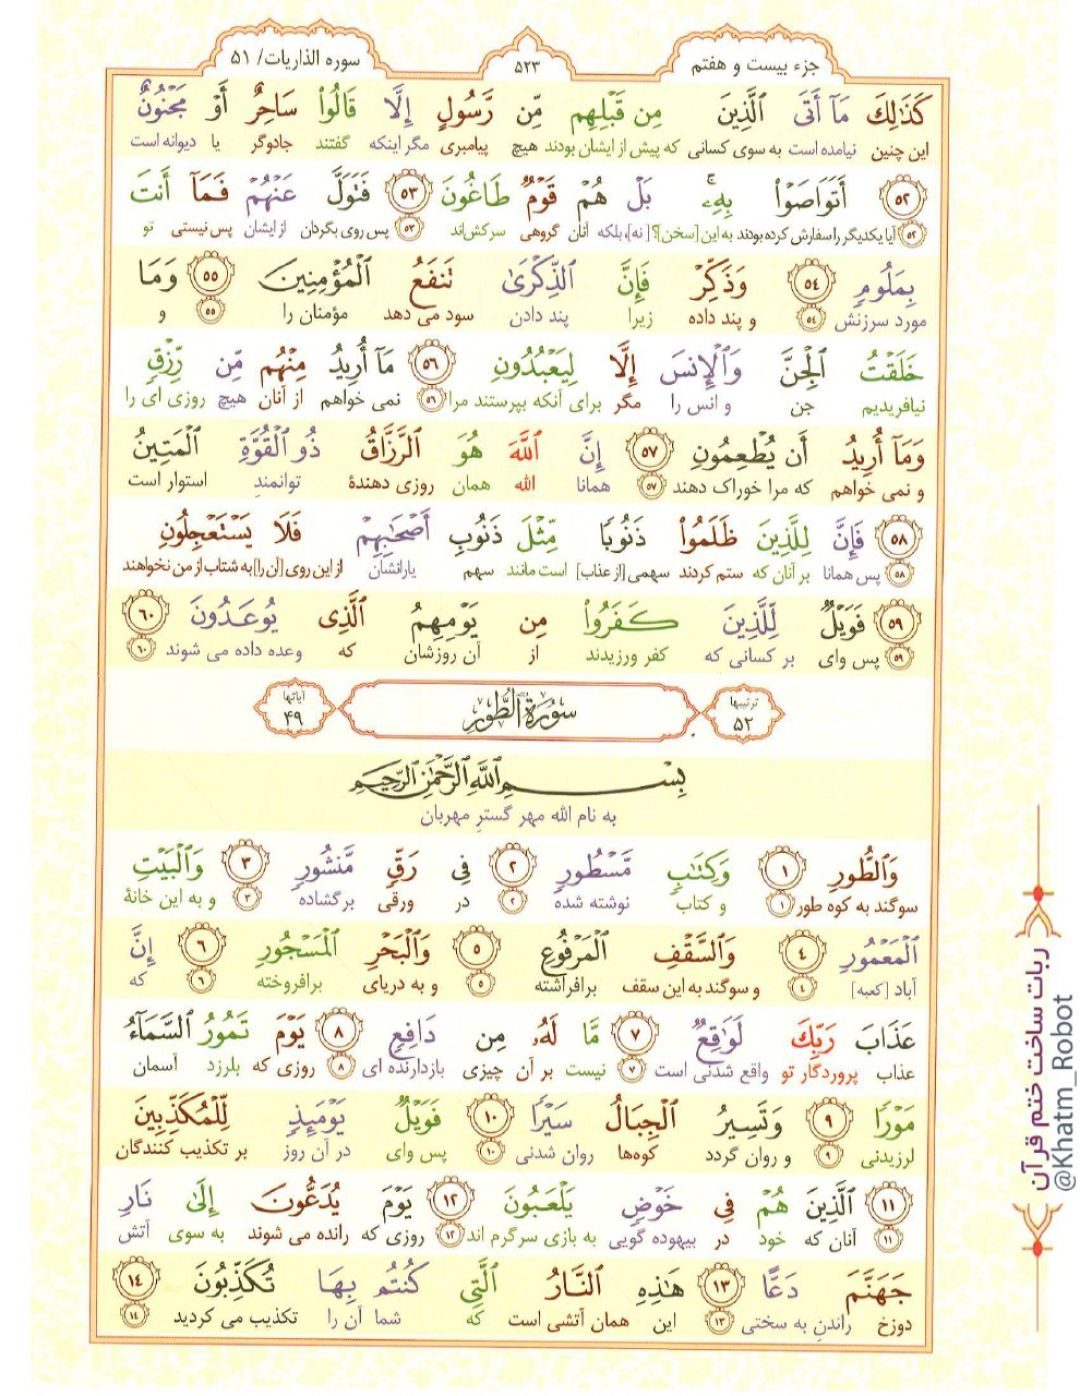 جزء بیست و هفتم
۵۲۳
سوره الذاریات/ ۵۱
كَذَٰلِكَ مَآ أَتَى ٱلَّذِينَ مِن قَبْلِهِم مِّن رَّسُولٍ إِلَّا قَالُوا۟ سَاحِرٌ أَوْ مَجْنُونٌ
این چنین نیامده است به سوی کسانی که پیش از ایشان بودند هیچ پیامبری مگر اینکه گفتند جادوگر یا دیوانه است
۵۲ أَتَوَاصَوْا۟ بِهِۦ ۚ بَلْ هُمْ قَوْمٌ طَاغُونَ ۵۳ فَتَوَلَّ عَنْهُمْ فَمَآ أَنتَ
۵۲ آیا یکدیگر را سفارش کرده بودند به این [سخن]؟ [نه]، بلکه آنان گروهی سرکش‌اند ۵۳ پس روی بگردان از ایشان پس نیستی تو
بِمَلُومٍ ۵۴ وَذَكِّرْ فَإِنَّ ٱلذِّكْرَىٰ تَنفَعُ ٱلْمُؤْمِنِينَ ۵۵ وَمَا
مورد سرزنش ۵۴ و پند داده زیرا پند دادن سود می دهد مؤمنان را ۵۵ و
خَلَقْتُ ٱلْجِنَّ وَٱلْإِنسَ إِلَّا لِيَعْبُدُونِ ۵۶ مَآ أُرِيدُ مِنْهُم مِّن رِّزْقٍ
نیافریدیم جن و انس را مگر برای آنکه بپرستند مرا ۵۶ نمی خواهم از آنان هیچ روزی ای را
وَمَآ أُرِيدُ أَن يُطْعِمُونِ ۵۷ إِنَّ ٱللَّهَ هُوَ ٱلرَّزَّاقُ ذُو ٱلْقُوَّةِ ٱلْمَتِينُ
و نمی خواهم که مرا خوراک دهند ۵۷ همانا الله همان روزی دهندهٔ توانمندِ استوار است
۵۸ فَإِنَّ لِلَّذِينَ ظَلَمُوا۟ ذَنُوبًا مِّثْلَ ذَنُوبِ أَصْحَٰبِهِمْ فَلَا يَسْتَعْجِلُونِ
۵۸ پس همانا بر آنان که ستم کردند سهمی [از عذاب] است مانند سهم یارانشان از این روی [آن را] به شتاب از من نخواهند
۵۹ فَوَيْلٌ لِّلَّذِينَ كَفَرُوا۟ مِن يَوْمِهِمُ ٱلَّذِى يُوعَدُونَ ۶۰
۵۹ پس وای بر کسانی که کفر ورزیدند از آن روزشان که وعده داده می شوند ۶۰
ترتیبها ۵۲
سُورَةُ ٱلطُّورِ
آیاتها ۴۹
بِسْمِ ٱللَّهِ ٱلرَّحْمَٰنِ ٱلرَّحِيمِ
به نام الله مهر گسترِ مهربان
وَٱلطُّورِ ۱ وَكِتَٰبٍ مَّسْطُورٍ ۲ فِى رَقٍّ مَّنشُورٍ ۳ وَٱلْبَيْتِ
سوگند به کوه طور ۱ و کتاب نوشته شده ۲ در ورقی برگشاده ۳ و به این خانهٔ
ٱلْمَعْمُورِ ۴ وَٱلسَّقْفِ ٱلْمَرْفُوعِ ۵ وَٱلْبَحْرِ ٱلْمَسْجُورِ ۶ إِنَّ
آباد [کعبه] ۴ و سوگند به این سقف برافراشته ۵ و به دریای برافروخته ۶ که
عَذَابَ رَبِّكَ لَوَٰقِعٌ ۷ مَّا لَهُۥ مِن دَافِعٍ ۸ يَوْمَ تَمُورُ ٱلسَّمَآءُ
عذاب پروردگار تو واقع شدنی است ۷ نیست بر آن چیزی بازدارنده ای ۸ روزی که بلرزد آسمان
مَوْرًا ۹ وَتَسِيرُ ٱلْجِبَالُ سَيْرًا ۱۰ فَوَيْلٌ يَوْمَئِذٍ لِّلْمُكَذِّبِينَ
لرزیدنی ۹ و روان گردد کوه‌ها روان شدنی ۱۰ پس وای در آن روز بر تکذیب کنندگان
۱۱ ٱلَّذِينَ هُمْ فِى خَوْضٍ يَلْعَبُونَ ۱۲ يَوْمَ يُدَعُّونَ إِلَىٰ نَارِ
۱۱ آنان که خود در بیهوده گویی به بازی سرگرم اند ۱۲ روزی که رانده می شوند به سوی آتش
جَهَنَّمَ دَعًّا ۱۳ هَٰذِهِ ٱلنَّارُ ٱلَّتِى كُنتُم بِهَا تُكَذِّبُونَ ۱۴
دوزخ راندنِ به سختی ۱۳ این همان آتشی است که شما آن را تکذیب می کردید ۱۴
ربات ساخت ختم قرآن
@Khatm_Robot